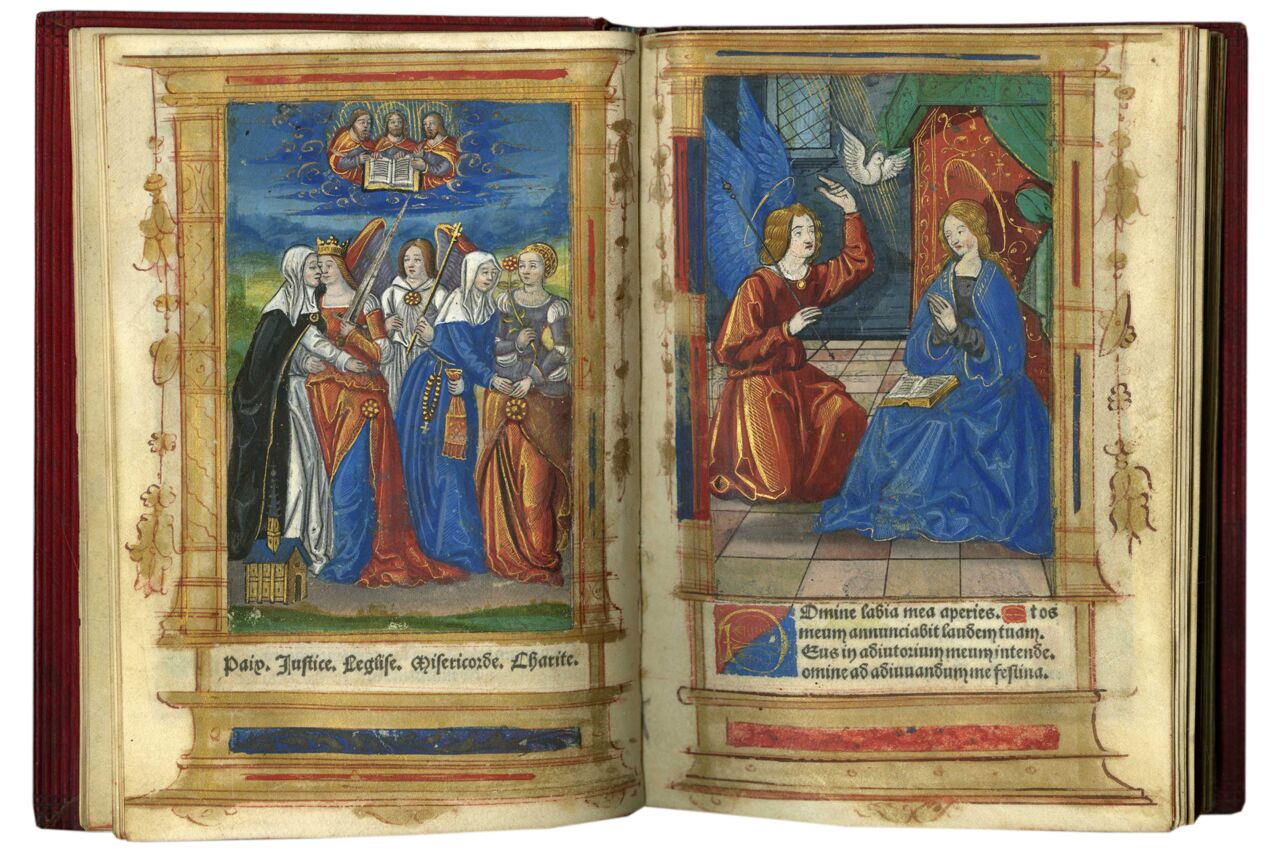 Paix. Justice. Leglise. Misericorde. Charite.
DOmine labia mea aperies. Et os
meum annunciabit laudem tuam.
Eus in adiutorium meum intende.
omine ad adiuvandum me festina.